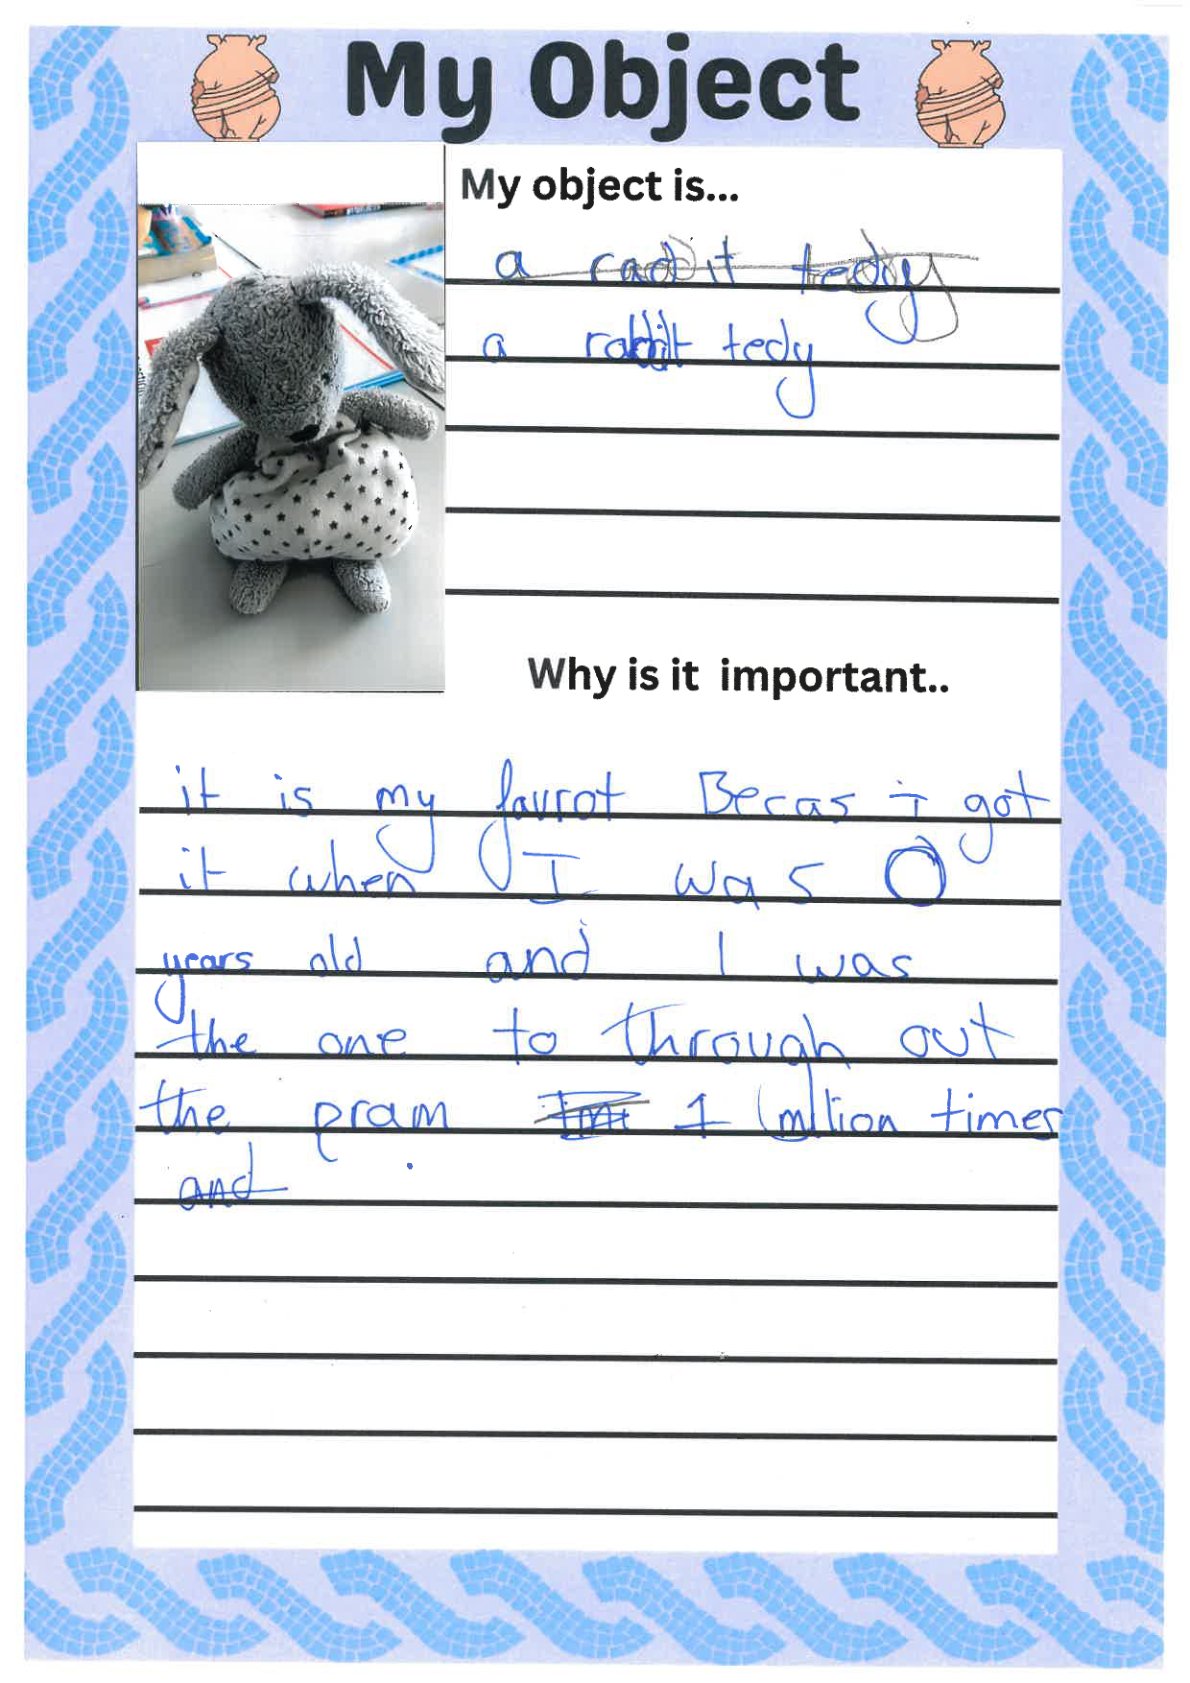 My Object
My object is...
a radit tedy
a rabbit tedy
Why is it important..
it is my favrot Becas i got
it when I was 0
years old and I was
the one to through out
the pram 1 million times
and